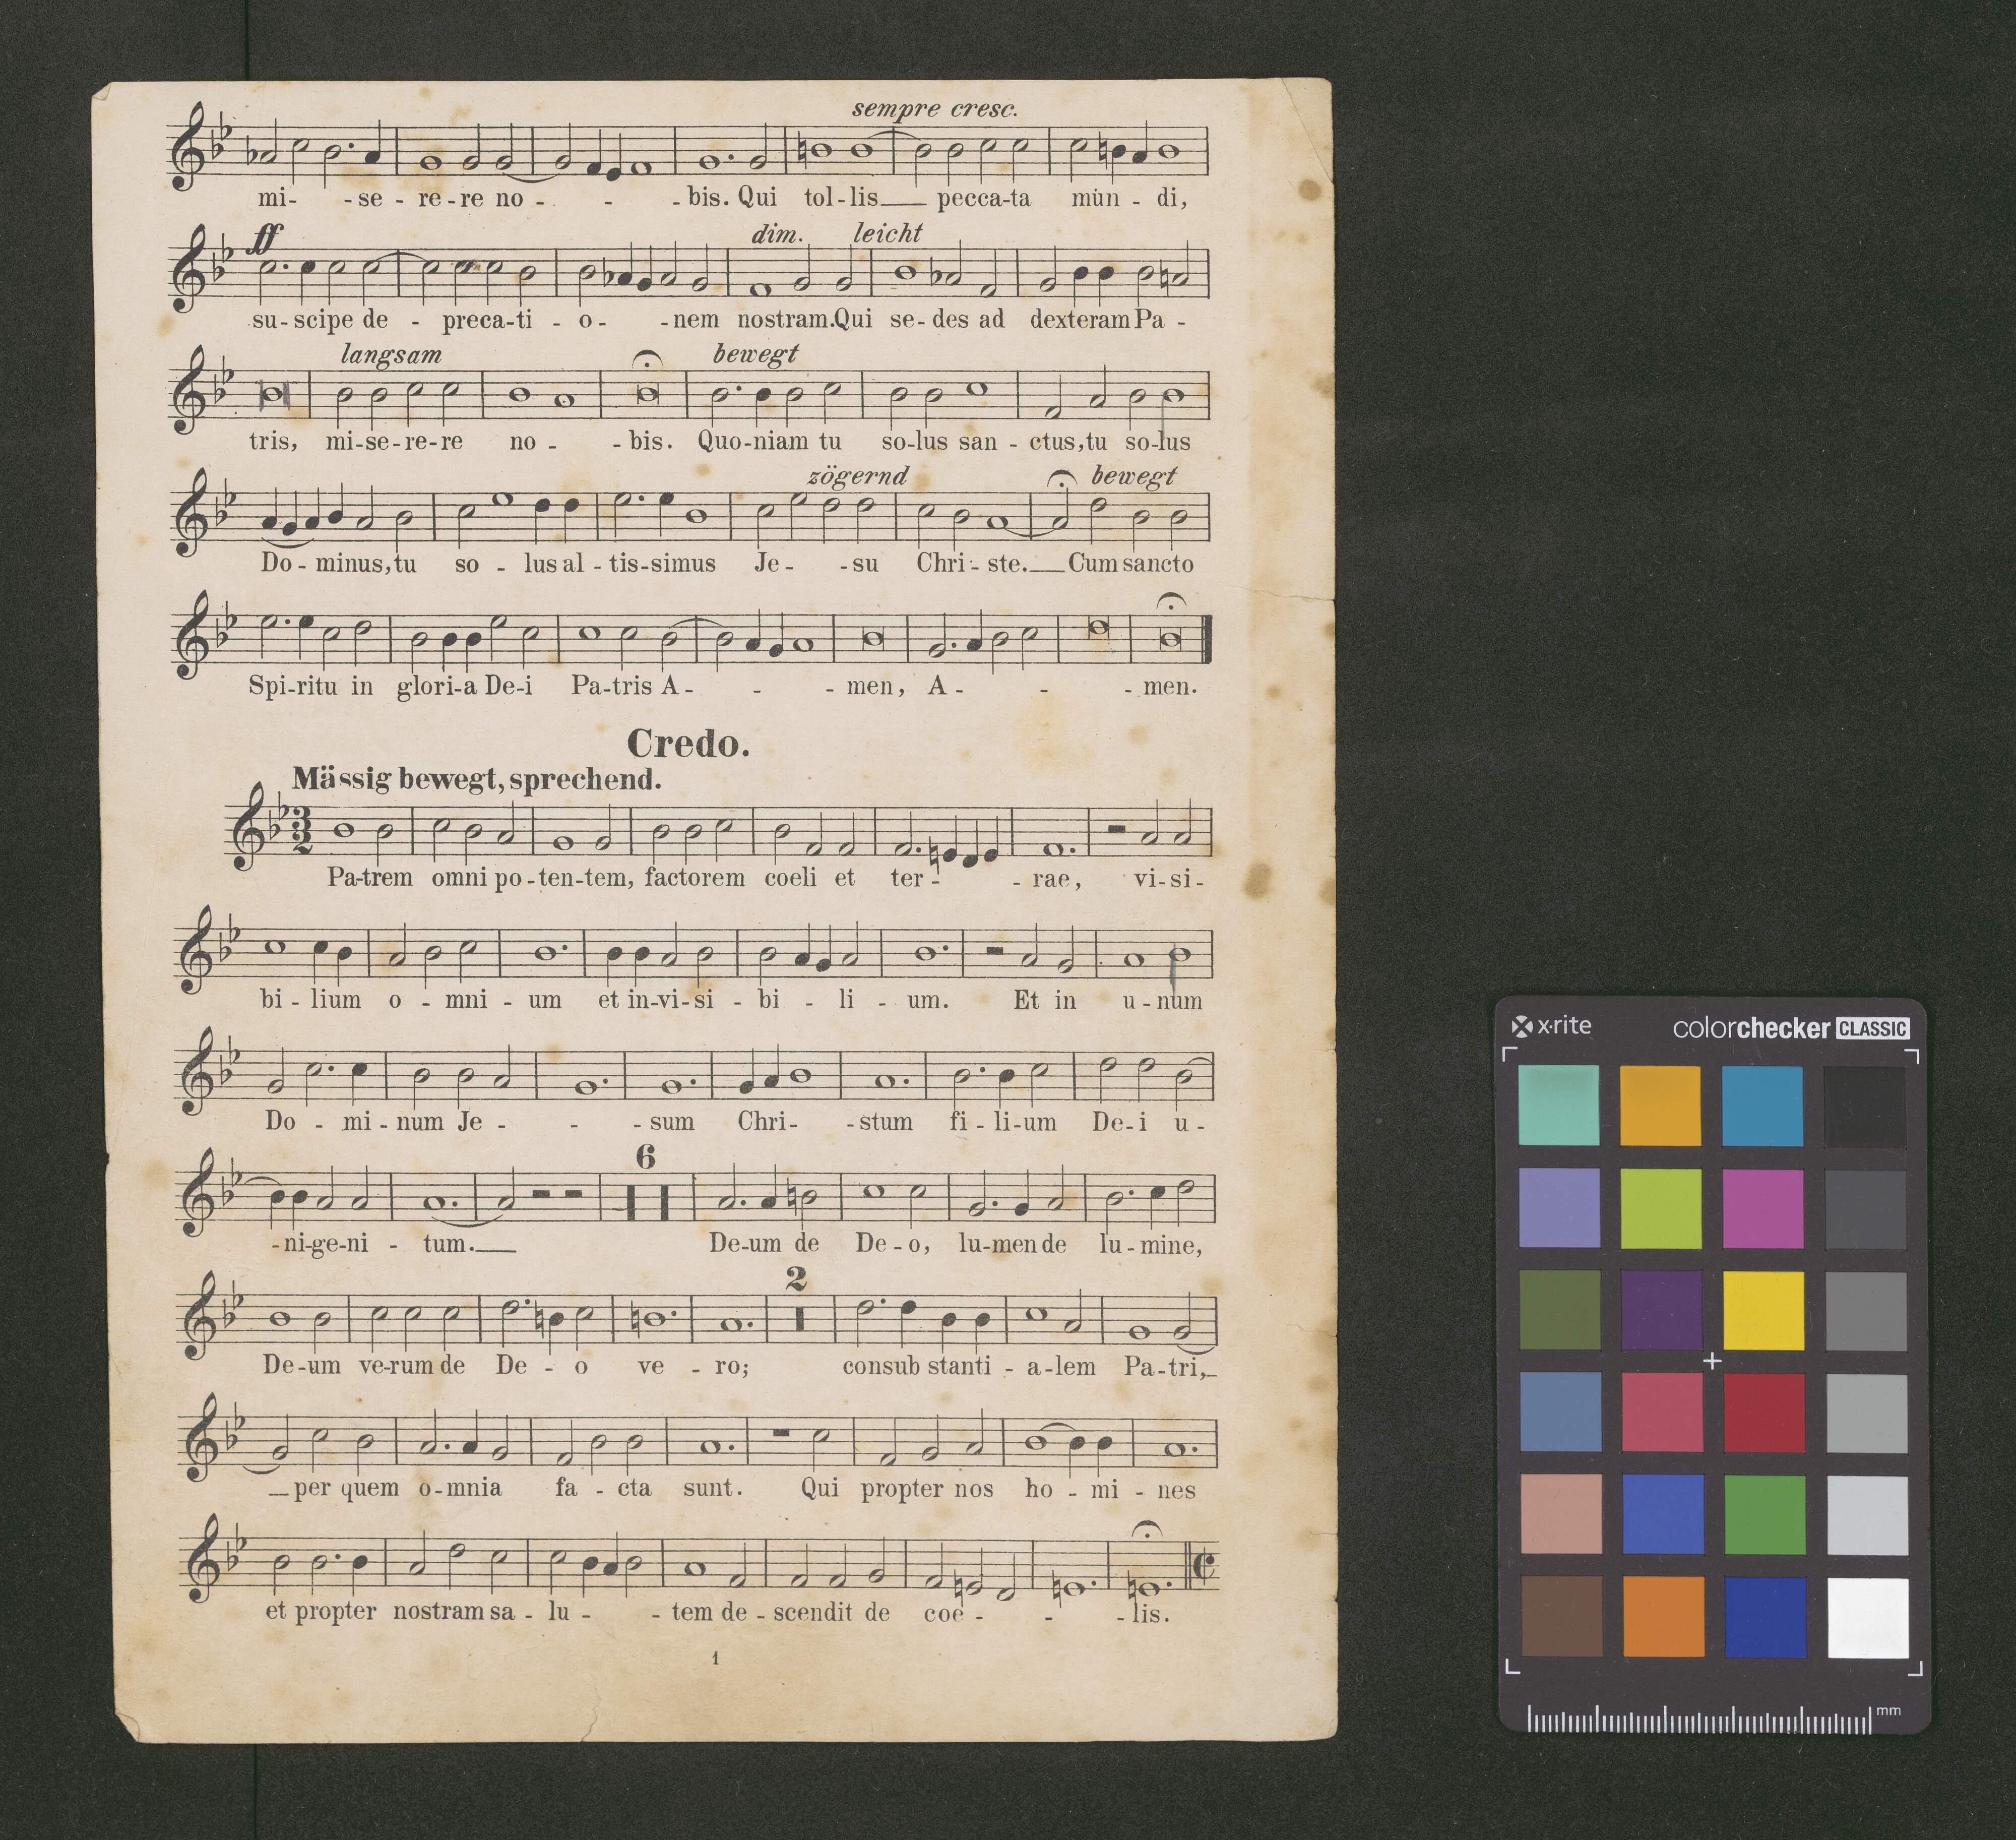 sempre cresc.
mi- -se - re-re no - - - -bis. Qui tol-lis___ pecca-ta mun - di,
ff dim. leicht
su-scipe de - preca-ti - o- -nem nostram.Qui se-des ad dexteram Pa -
langsam bewegt
tris, mi-se-re-re no - -bis. Quo-niam tu so-lus san - ctus,tu so-lus
zögernd bewegt
Do-minus,tu so - lus al-tis-simus Je- -su Chri-ste.___ Cum sancto
Spi-ritu in glori-a De-i Pa-tris A - - - -men, A - - -men.
Credo.
Mässig bewegt, sprechend.
3
2
Pa-trem omni po-ten-tem, factorem coeli et ter- -rae, vi-si-
bi-lium o - mni - um et in-vi-si - bi - li - um. Et in u-num
Do - mi-num Je - - -sum Chri- -stum fi-li-um De-i u-
6
-ni-ge-ni - tum.___ De-um de De-o, lu-men de lu-mine,
2
De-um ve-rum de De - o ve - ro; consub stanti - a-lem Pa-tri,_
_per quem o-mnia fa - cta sunt. Qui propter nos ho - mi - nes
et propter nostram sa - lu - -tem de-scendit de coe - - -lis.
1
x·rite colorchecker CLASSIC
mm